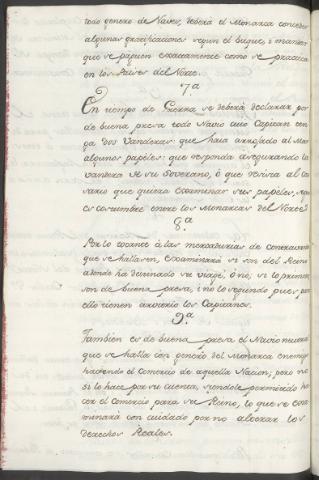 todo genero de Naves, deberá el Monarca conceder
algunas gratificaciones segun el buque, i manera
que se paguen exactamente como se practica
en los Paises del Norte.
7ª
En tiempo de Guerra se deberá declarar por
de buena presa todo Navio cuio Capitan ten-
ga dos Vanderas: que haia arrojado al Mar
algunos papeles: que responda asegurando la
vandera de su Soverano, ó que resista al Co-
sario que quiera examinar sus papeles, segun
es costumbre entre los Monarcas del Norte.
8ª
Por lo tocante à las mercadurias de contravando
que se hallasen, examinará si son del Reino
adonde ha destinado su viage, ó no; si lo primero
son de buena presa, i no lo segundo pues para
ello tienen arvitrio los Capitanes.
9ª
Tambien es de buena presa el Navio nuestro
que se halla con genero del Monarca enemigo
haciendo el Comercio de aquella Nacion; pero no
si lo hace por su cuenta, siendole permitido ha-
cer el comercio para su Reino, lo que se exa-
minará con cuidado por no alterar los
derechos Reales.